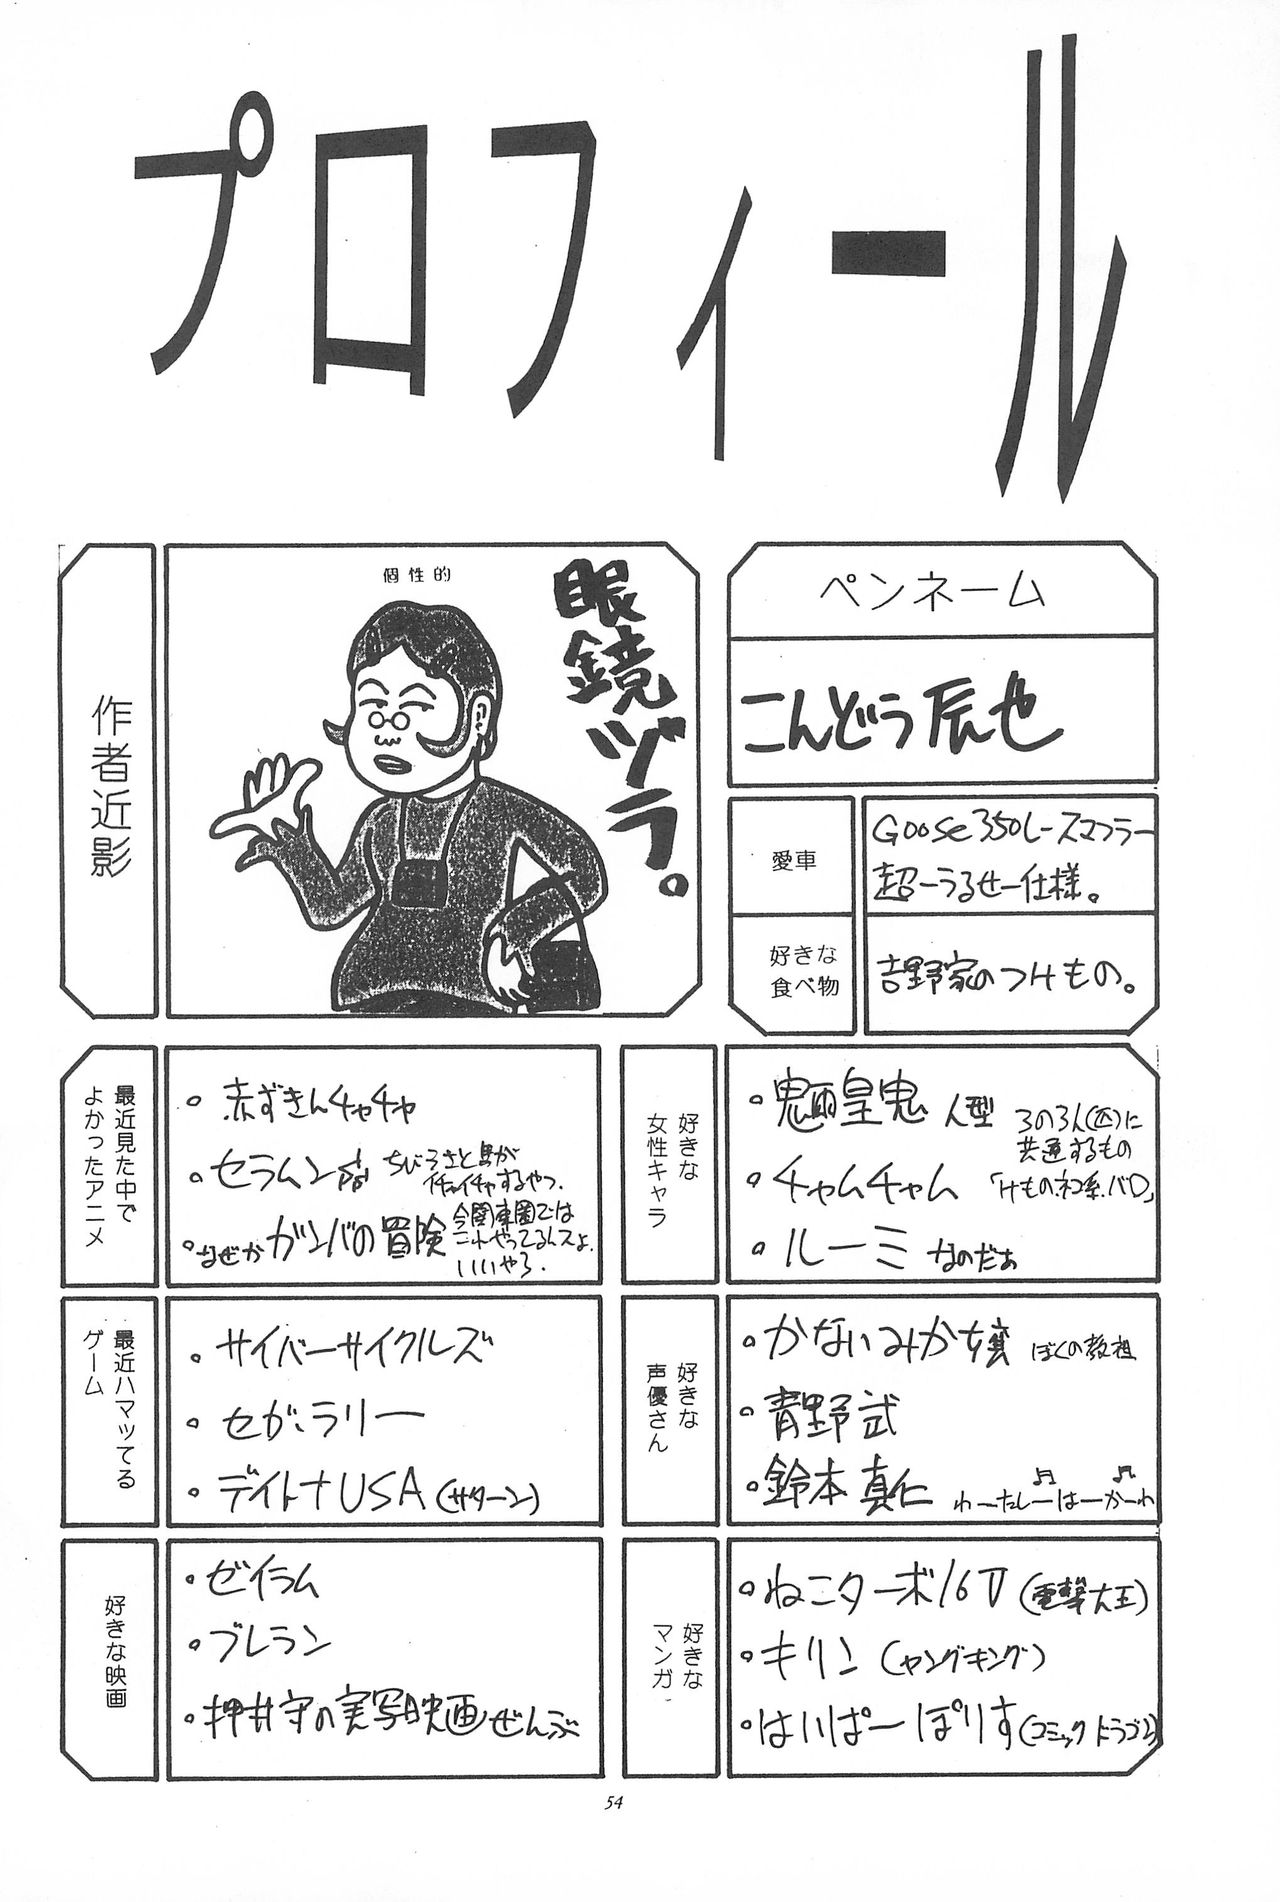 プロフィール
作者近影
個性的
眼鏡ヅラ。
ペンネーム
こんどう辰也
愛車
Goose350レースマフラー
超ーうるせー仕様。
好きな
食べ物
吉野家のつけもの。
最近見た中で
よかったアニメ
・赤ずきんチャチャ
・セラムン
ちびうさと馬が
イチャイチャするやつ。
・なぜかガンバの冒険
今関東圏では
これやってるんスよ。
いいやろ。
好きな
女性キャラ
・魎皇鬼 人型
・チャムチャム
・ルーミィ なのだぁ
この3人(匹)に
共通するもの
「けもの・ネコ系・バロ」
最近ハマッてる
ゲーム
・サイバーサイクルズ
・セガ・ラリー
・デイトナUSA(サターン)
好きな
声優さん
・かないみか嬢 ぼくの教祖
・青野武
・鈴木真仁 わーたしーはーかーわ
好きな映画
・ゼイラム
・ブレラン
・押井守の実写映画ぜんぶ
好きな
マンガ
・ねこターボ16V(電撃大王)
・キリン(ヤングキング)
・はいぱーぽりす(コミックドラゴン)
54